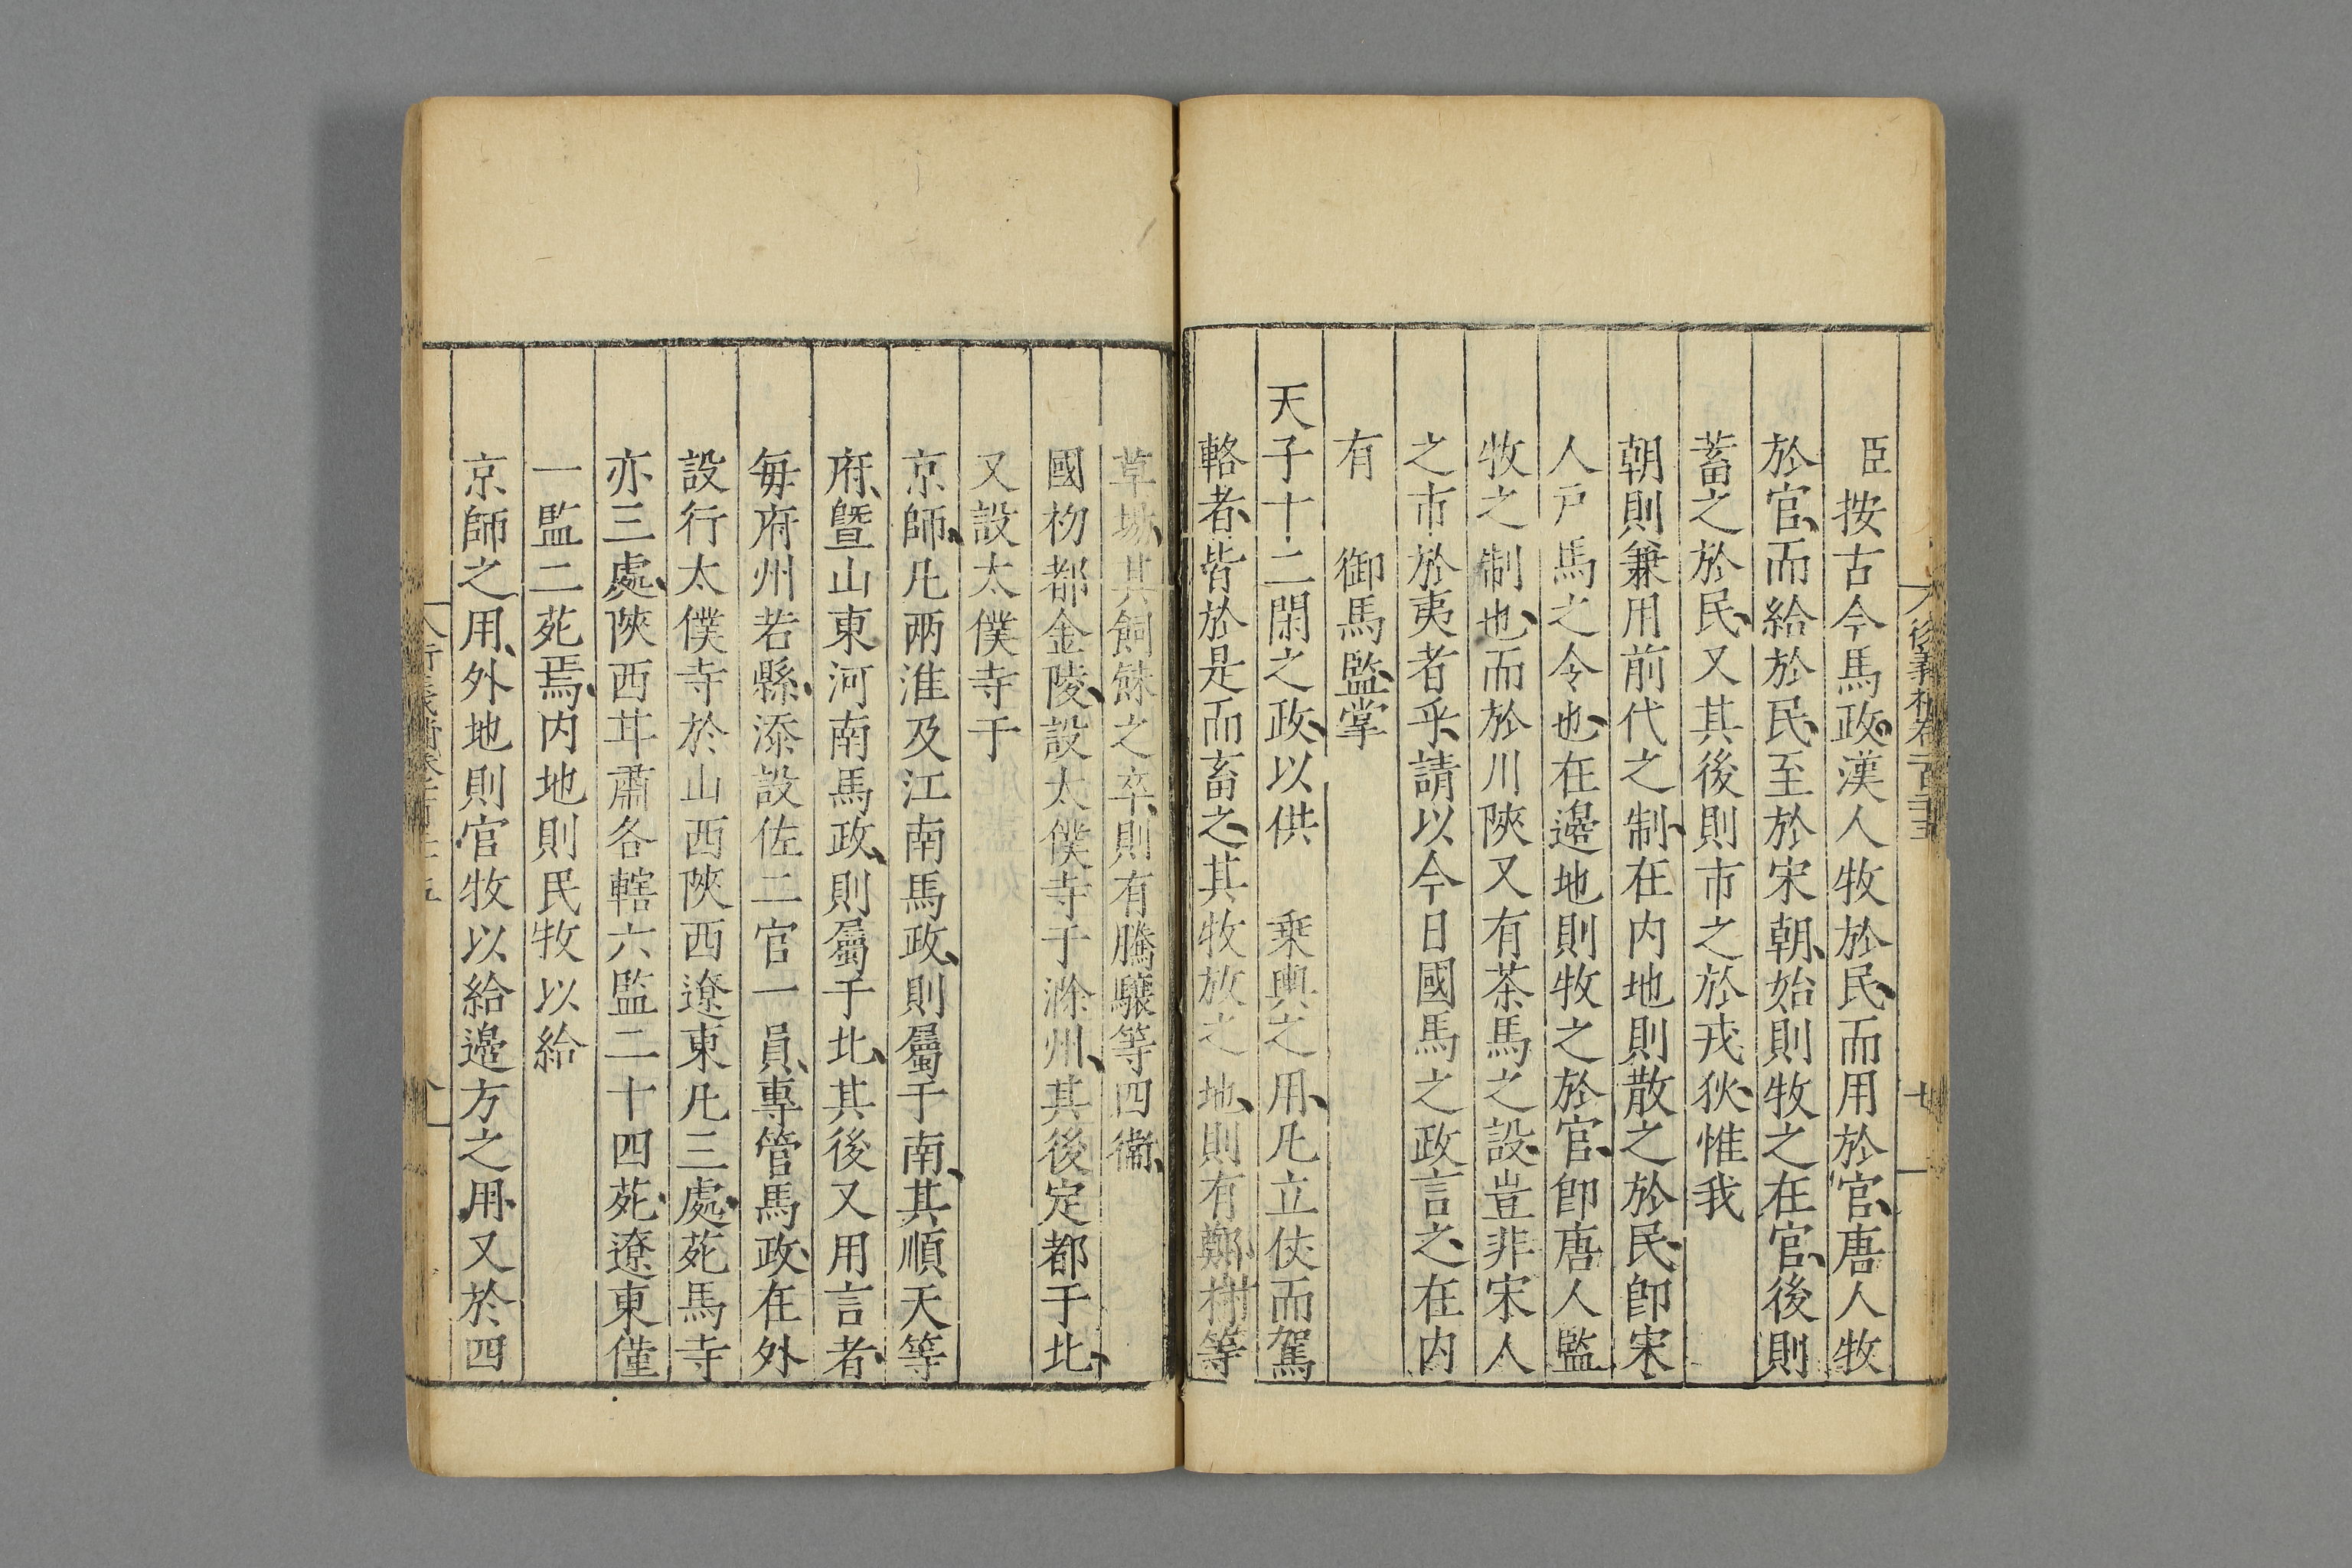 臣按古今馬政漢人牧於民而用於官唐人牧
於官而給於民至於宋朝始則牧之在官後則
蓄之於民又其後則市之於戎狄惟我
朝則兼用前代之制在内地則散之於民卽宋
人戸馬之令也在邊地則牧之於官卽唐人監
牧之制也而於川陜又有茶馬之設豈非宋人
之市於夷者乎請以今日國馬之政言之在内
有　御馬監掌
天子十二閑之政以供　乗輿之用凡立仗而駕
輅者皆於是而畜之其牧放之地則有鄭村等
草塲其飼餗之卒則有騰驤等四衞
國初都金陵設太僕寺于滁州其後定都于北
又設太僕寺于
京師凡兩淮及江南馬政則屬于南其順天等
府暨山東河南馬政則屬于北其後又用言者
每府州若縣添設佐二官一員專管馬政在外
設行太僕寺於山西陜西遼東凡三處苑馬寺
亦三處陜西甘肅各轄六監二十四苑遼東僅
一監二苑焉内地則民牧以給
京師之用外地則官牧以給邊方之用又於四